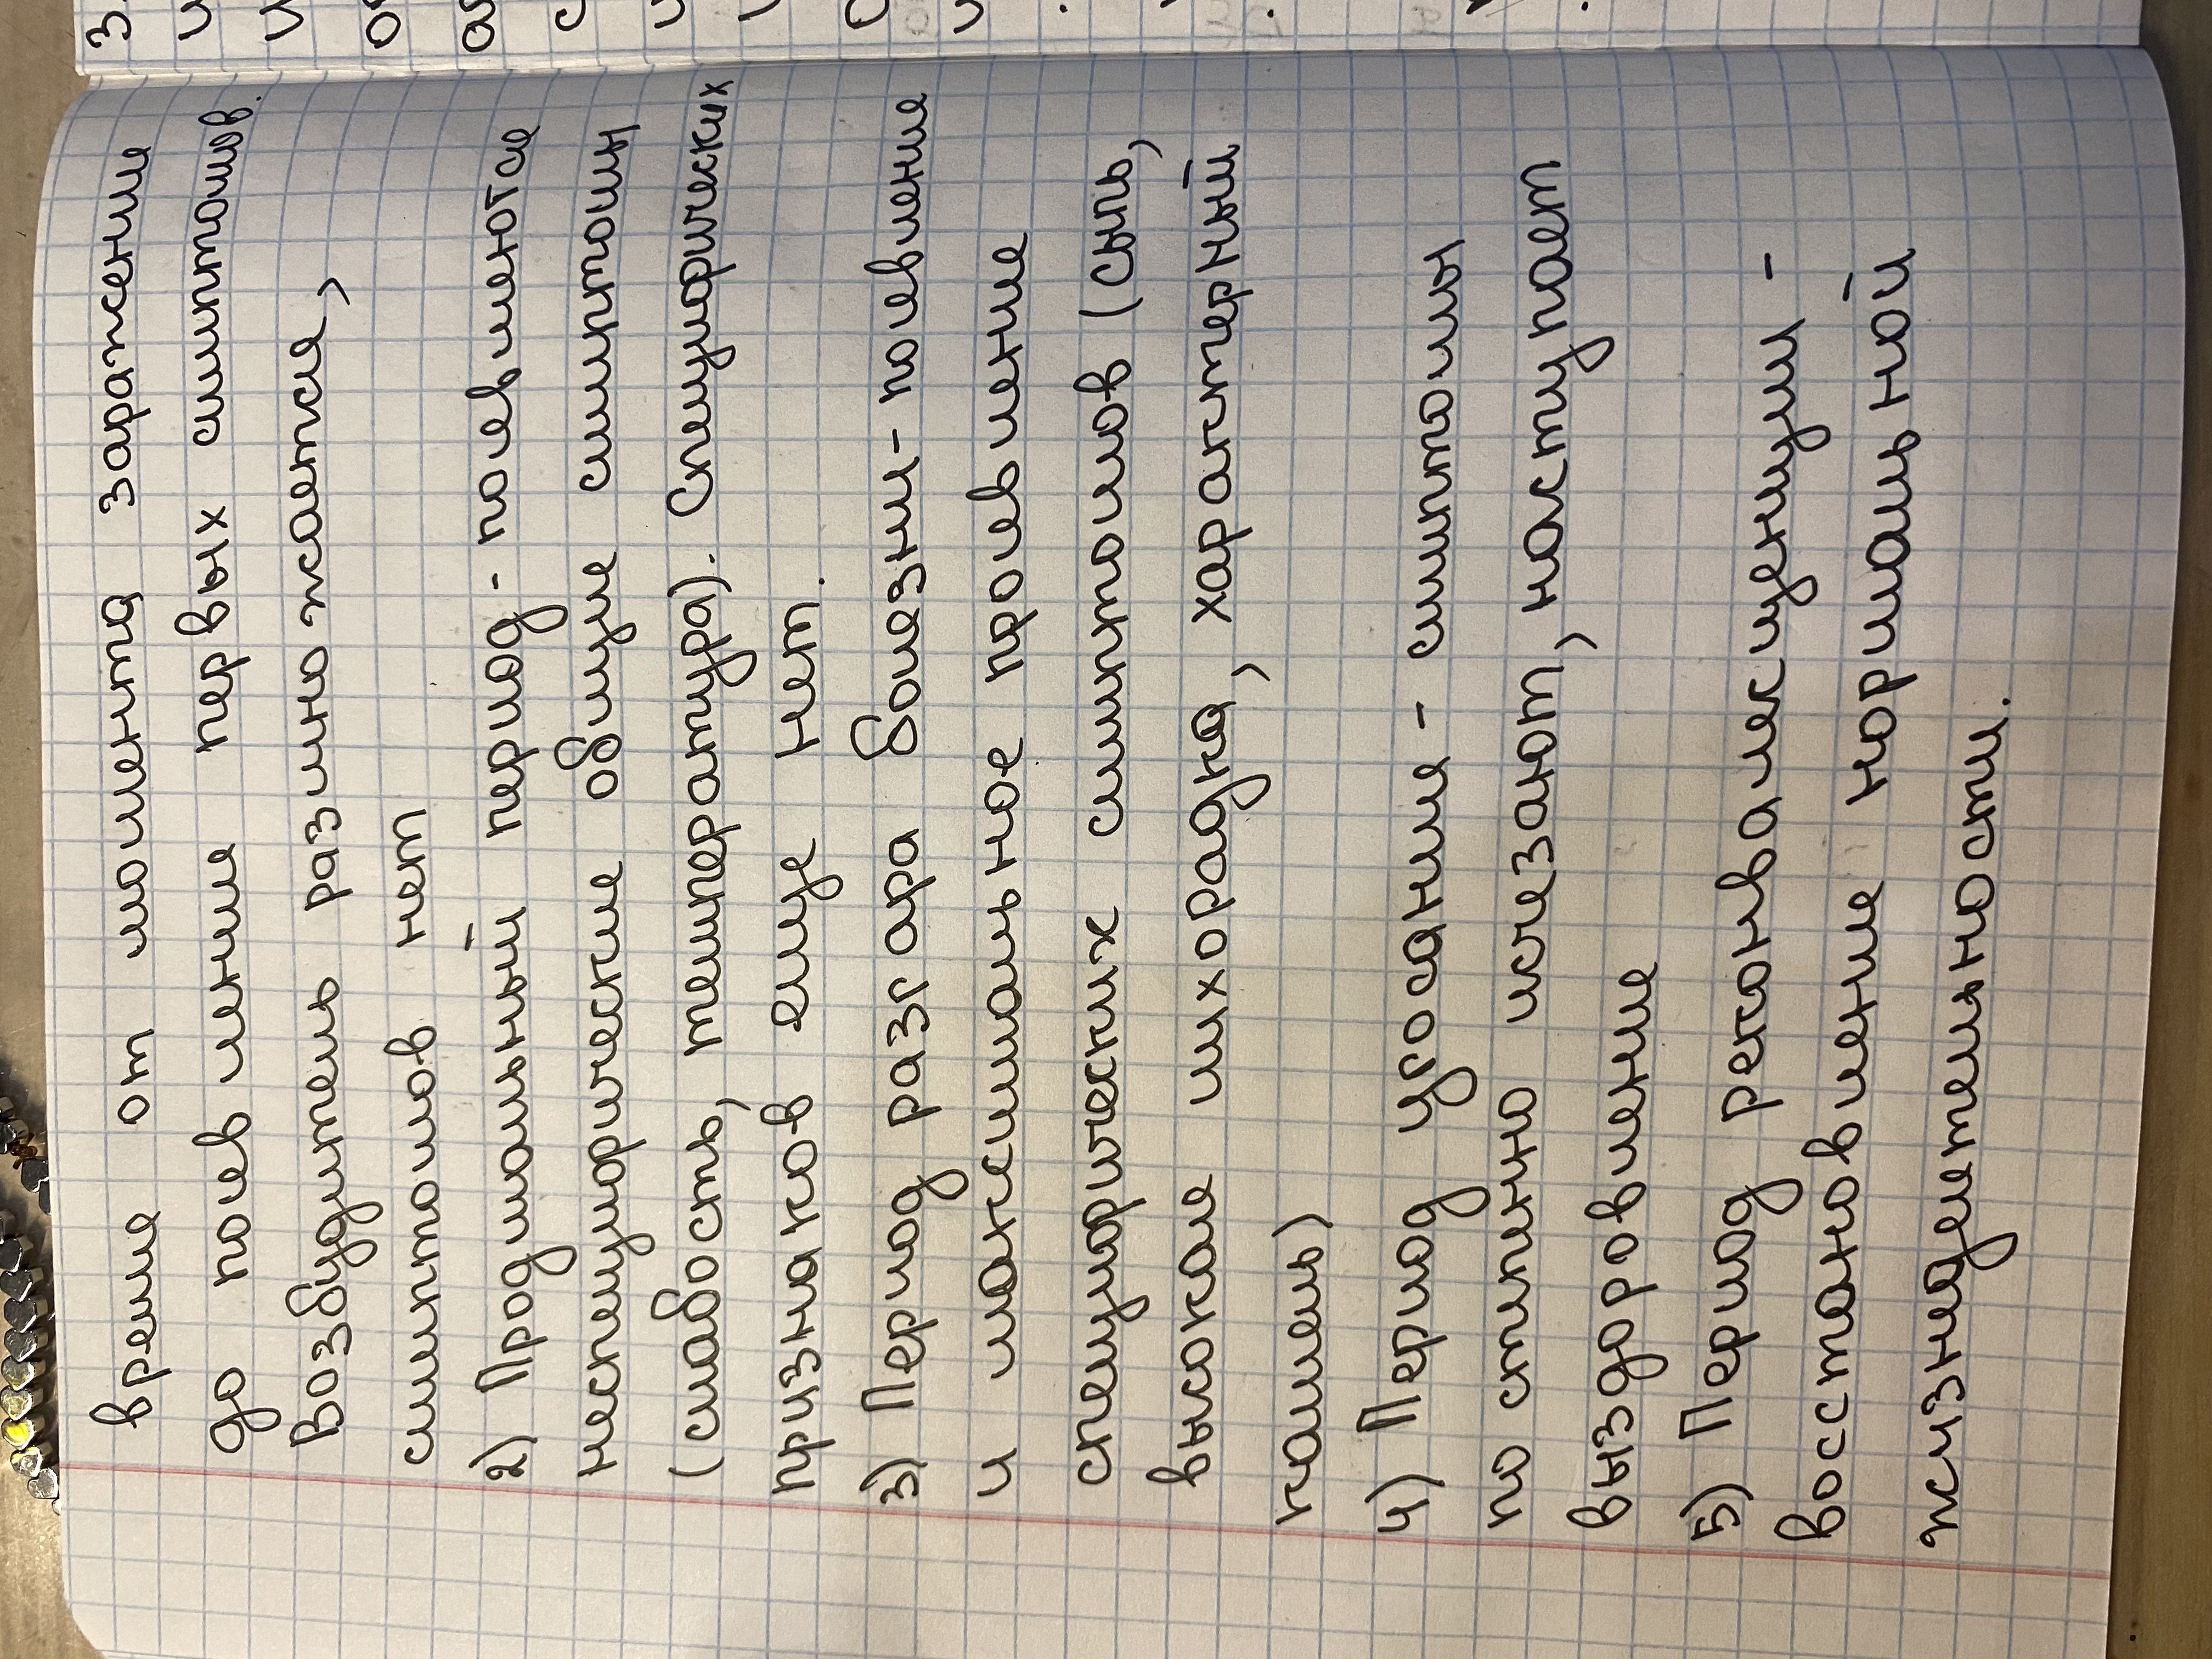 время от момента заражения
до появления первых симптомов.
Возбудитель размножается,
симптомов нет
2) Продмальный период - появляются
неспецифические общие симптомы
(слабость, температура). Специфических
признаков еще нет.
3) Период разгара болезни - появление
и максимальное проявление
специфических симптомов (сыпь,
высокая лихорадка, характерный
кашель)
4) Период угосания - симптомы
постепенно исчезают, наступает
выздоровление
5) Период реконвалесценции -
восстановление нормальной
жизнедеятельности.